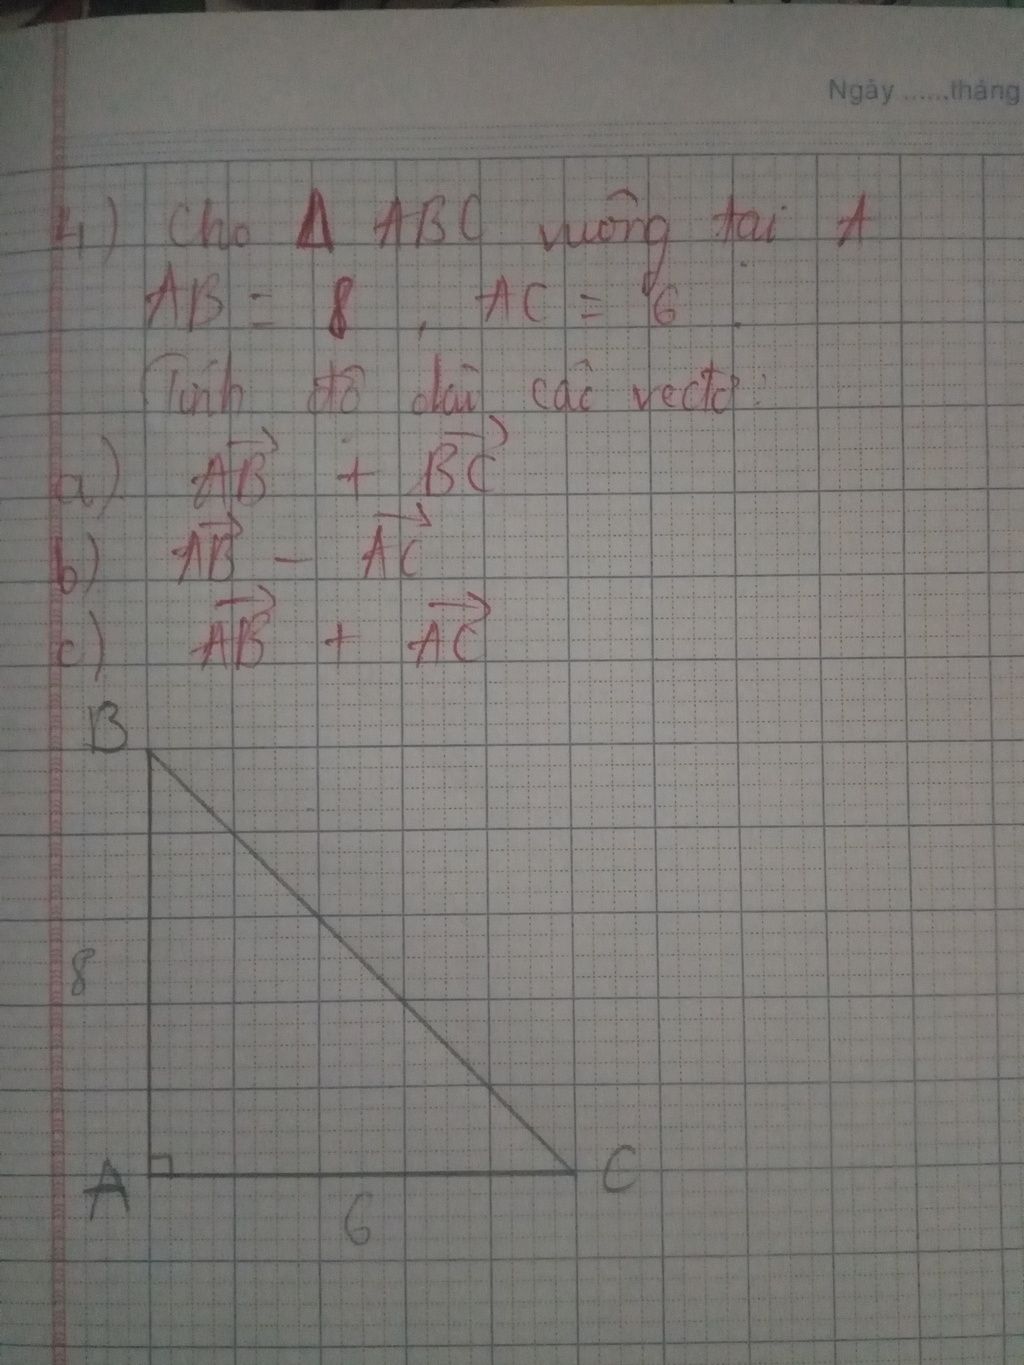 Ngày ......tháng
4) Cho Δ ABC vuông tại A
AB = 8 , AC = 6 .
Tính độ dài các vectơ:
a) \overrightarrow{AB} + \overrightarrow{BC}
b) \overrightarrow{AB} - \overrightarrow{AC}
c) \overrightarrow{AB} + \overrightarrow{AC}
B
8
A
C
6